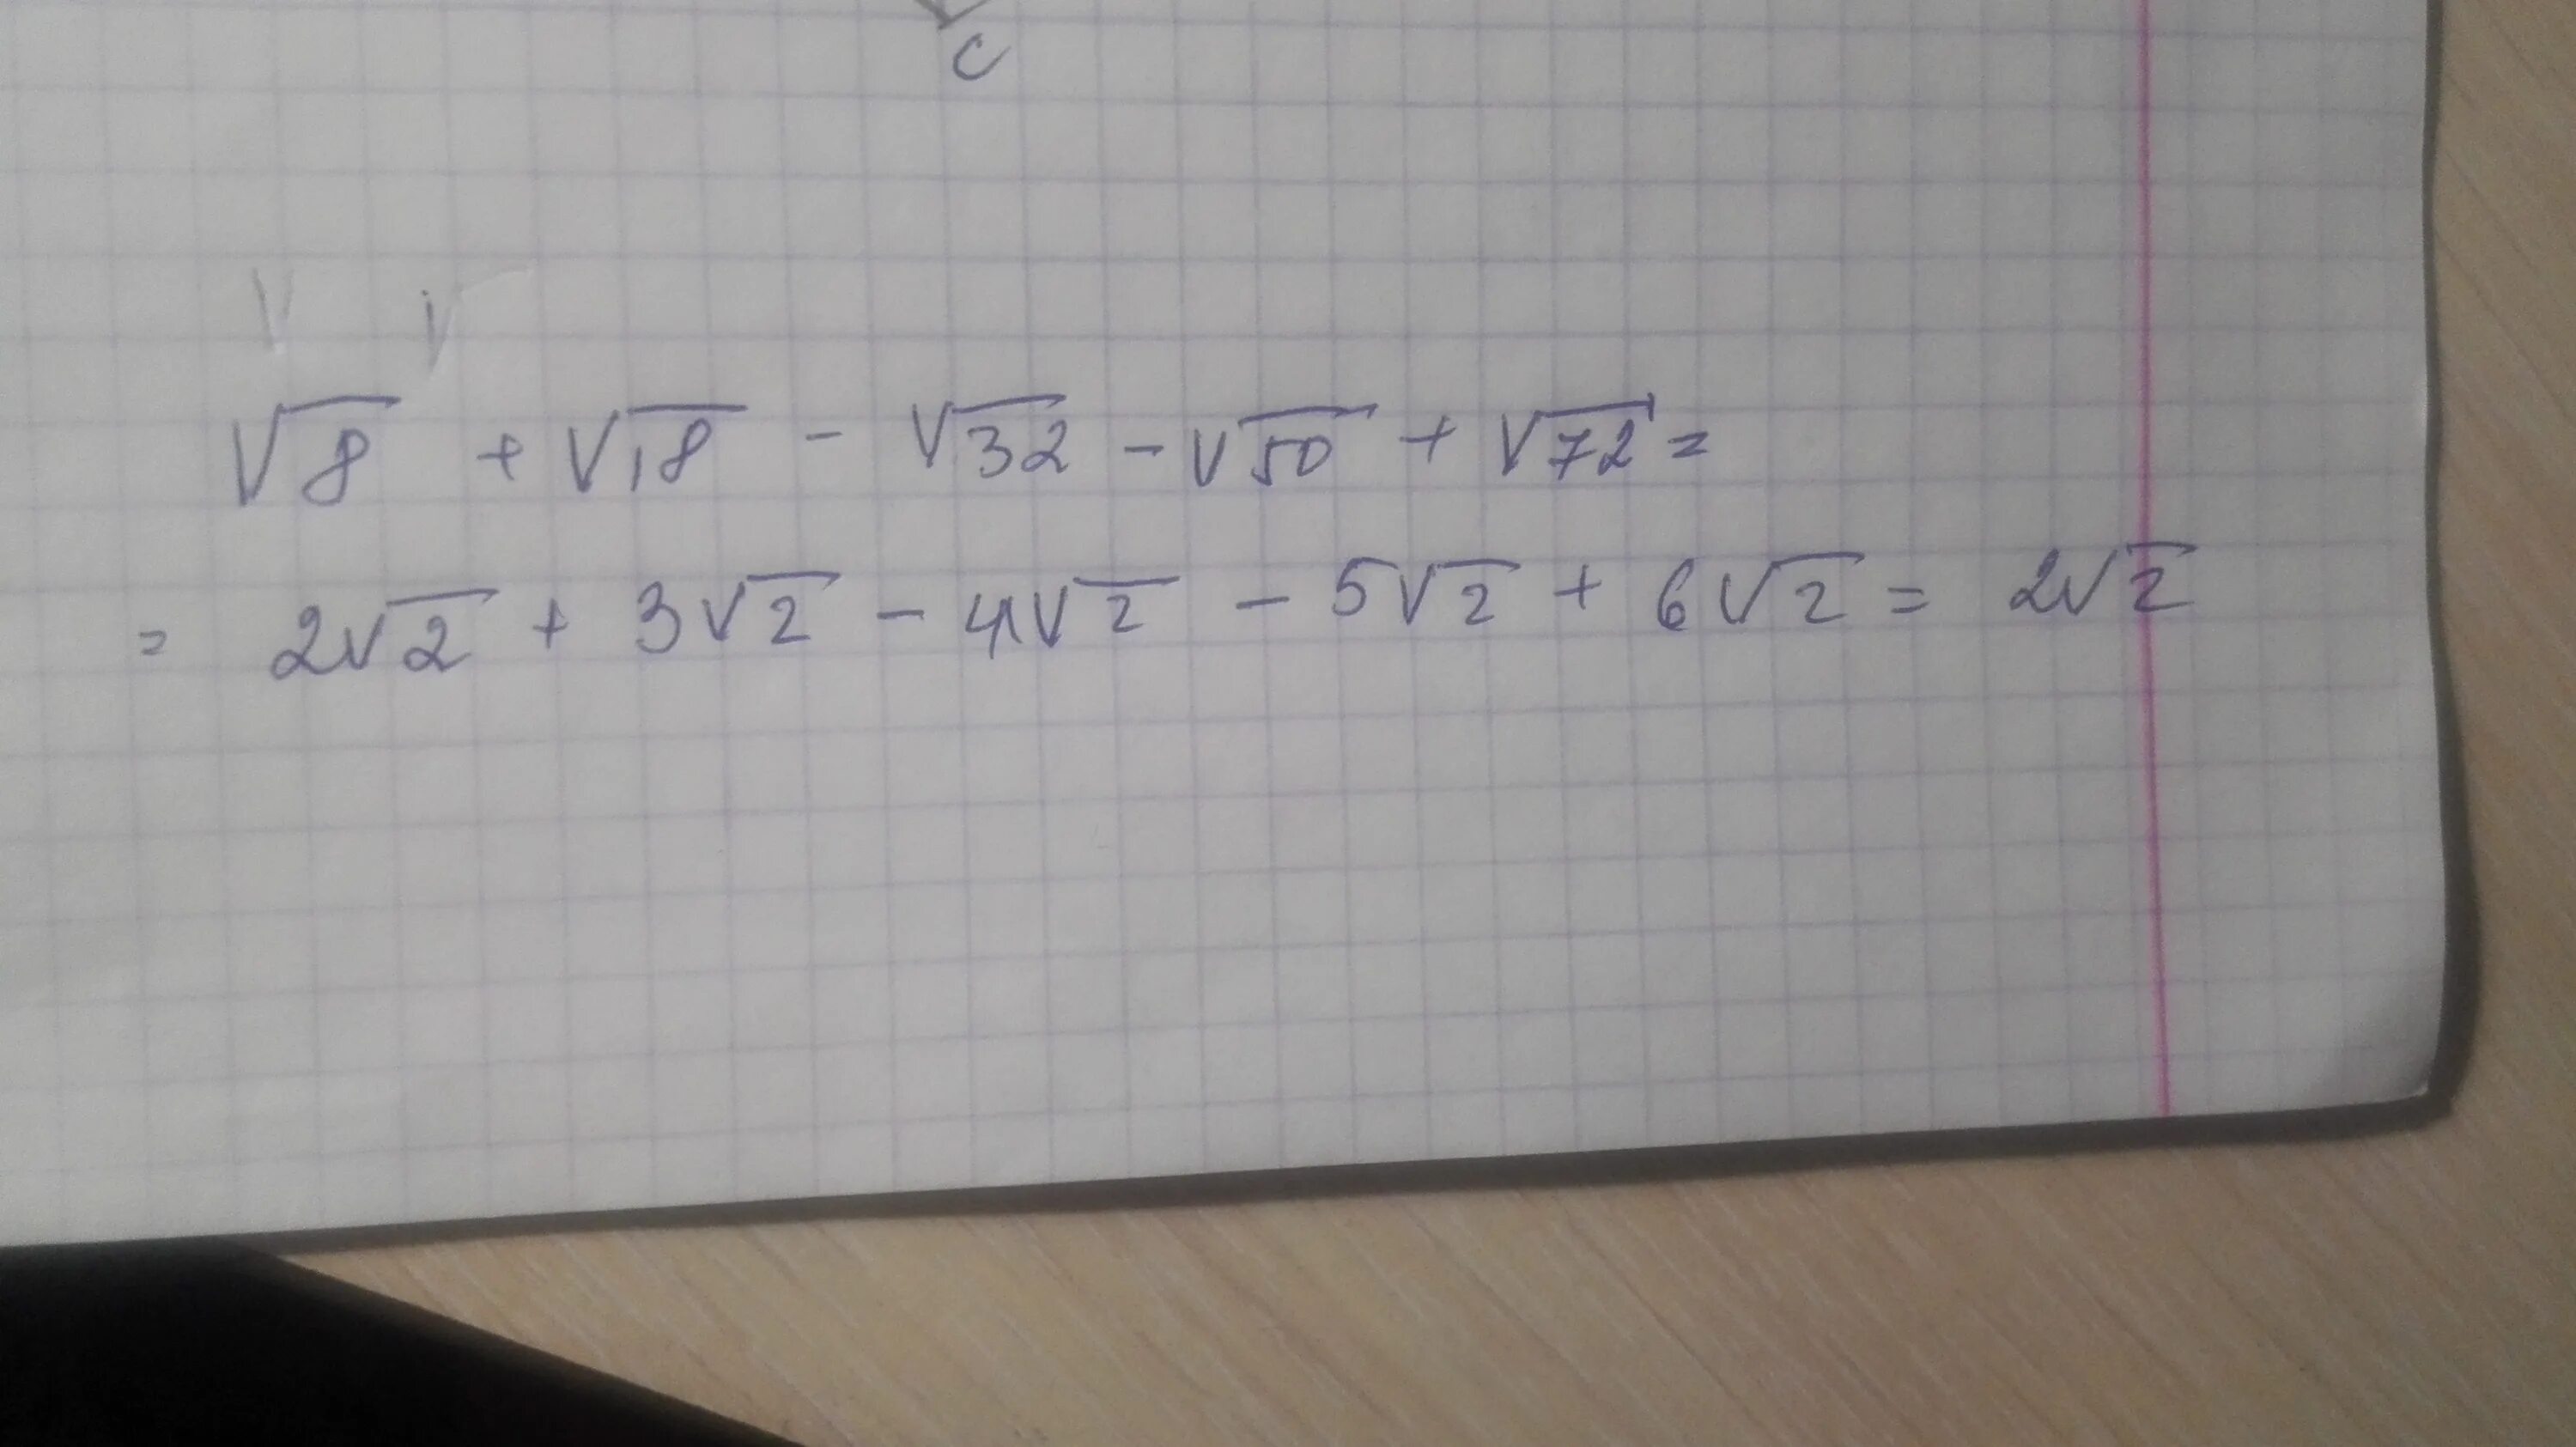 c
√8 + √18 - √32 - √50 + √72 =
= 2√2 + 3√2 - 4√2 - 5√2 + 6√2 = 2√2